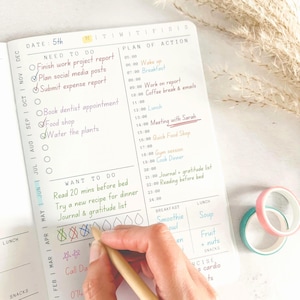 DATE: 5th
M T W T F S S
NEED TO DO
Finish work project report
Plan social media posts
Submit expense report
Book dentist appointment
Food shop
Water the plants
WANT TO DO
Read 20 mins before bed
Try a new recipe for dinner
Journal & gratitude list
Call Da
PLAN OF ACTION
Wake up
Breakfast
Work on report
Coffee break & emails
Lunch
Meeting with Sarah
Quick Food Shop
Gym session
Cook Dinner
Journal + gratitude list
Reading before bed
BREAKFAST
LUNCH
Smoothie
Soup
Fruit +
nuts
SNACKS
cardio
LUNCH
SNACKS
JAN
FEB
MAR
APR
MAY
JUN
JUL
AUG
SEP
OCT
NOV
DEC